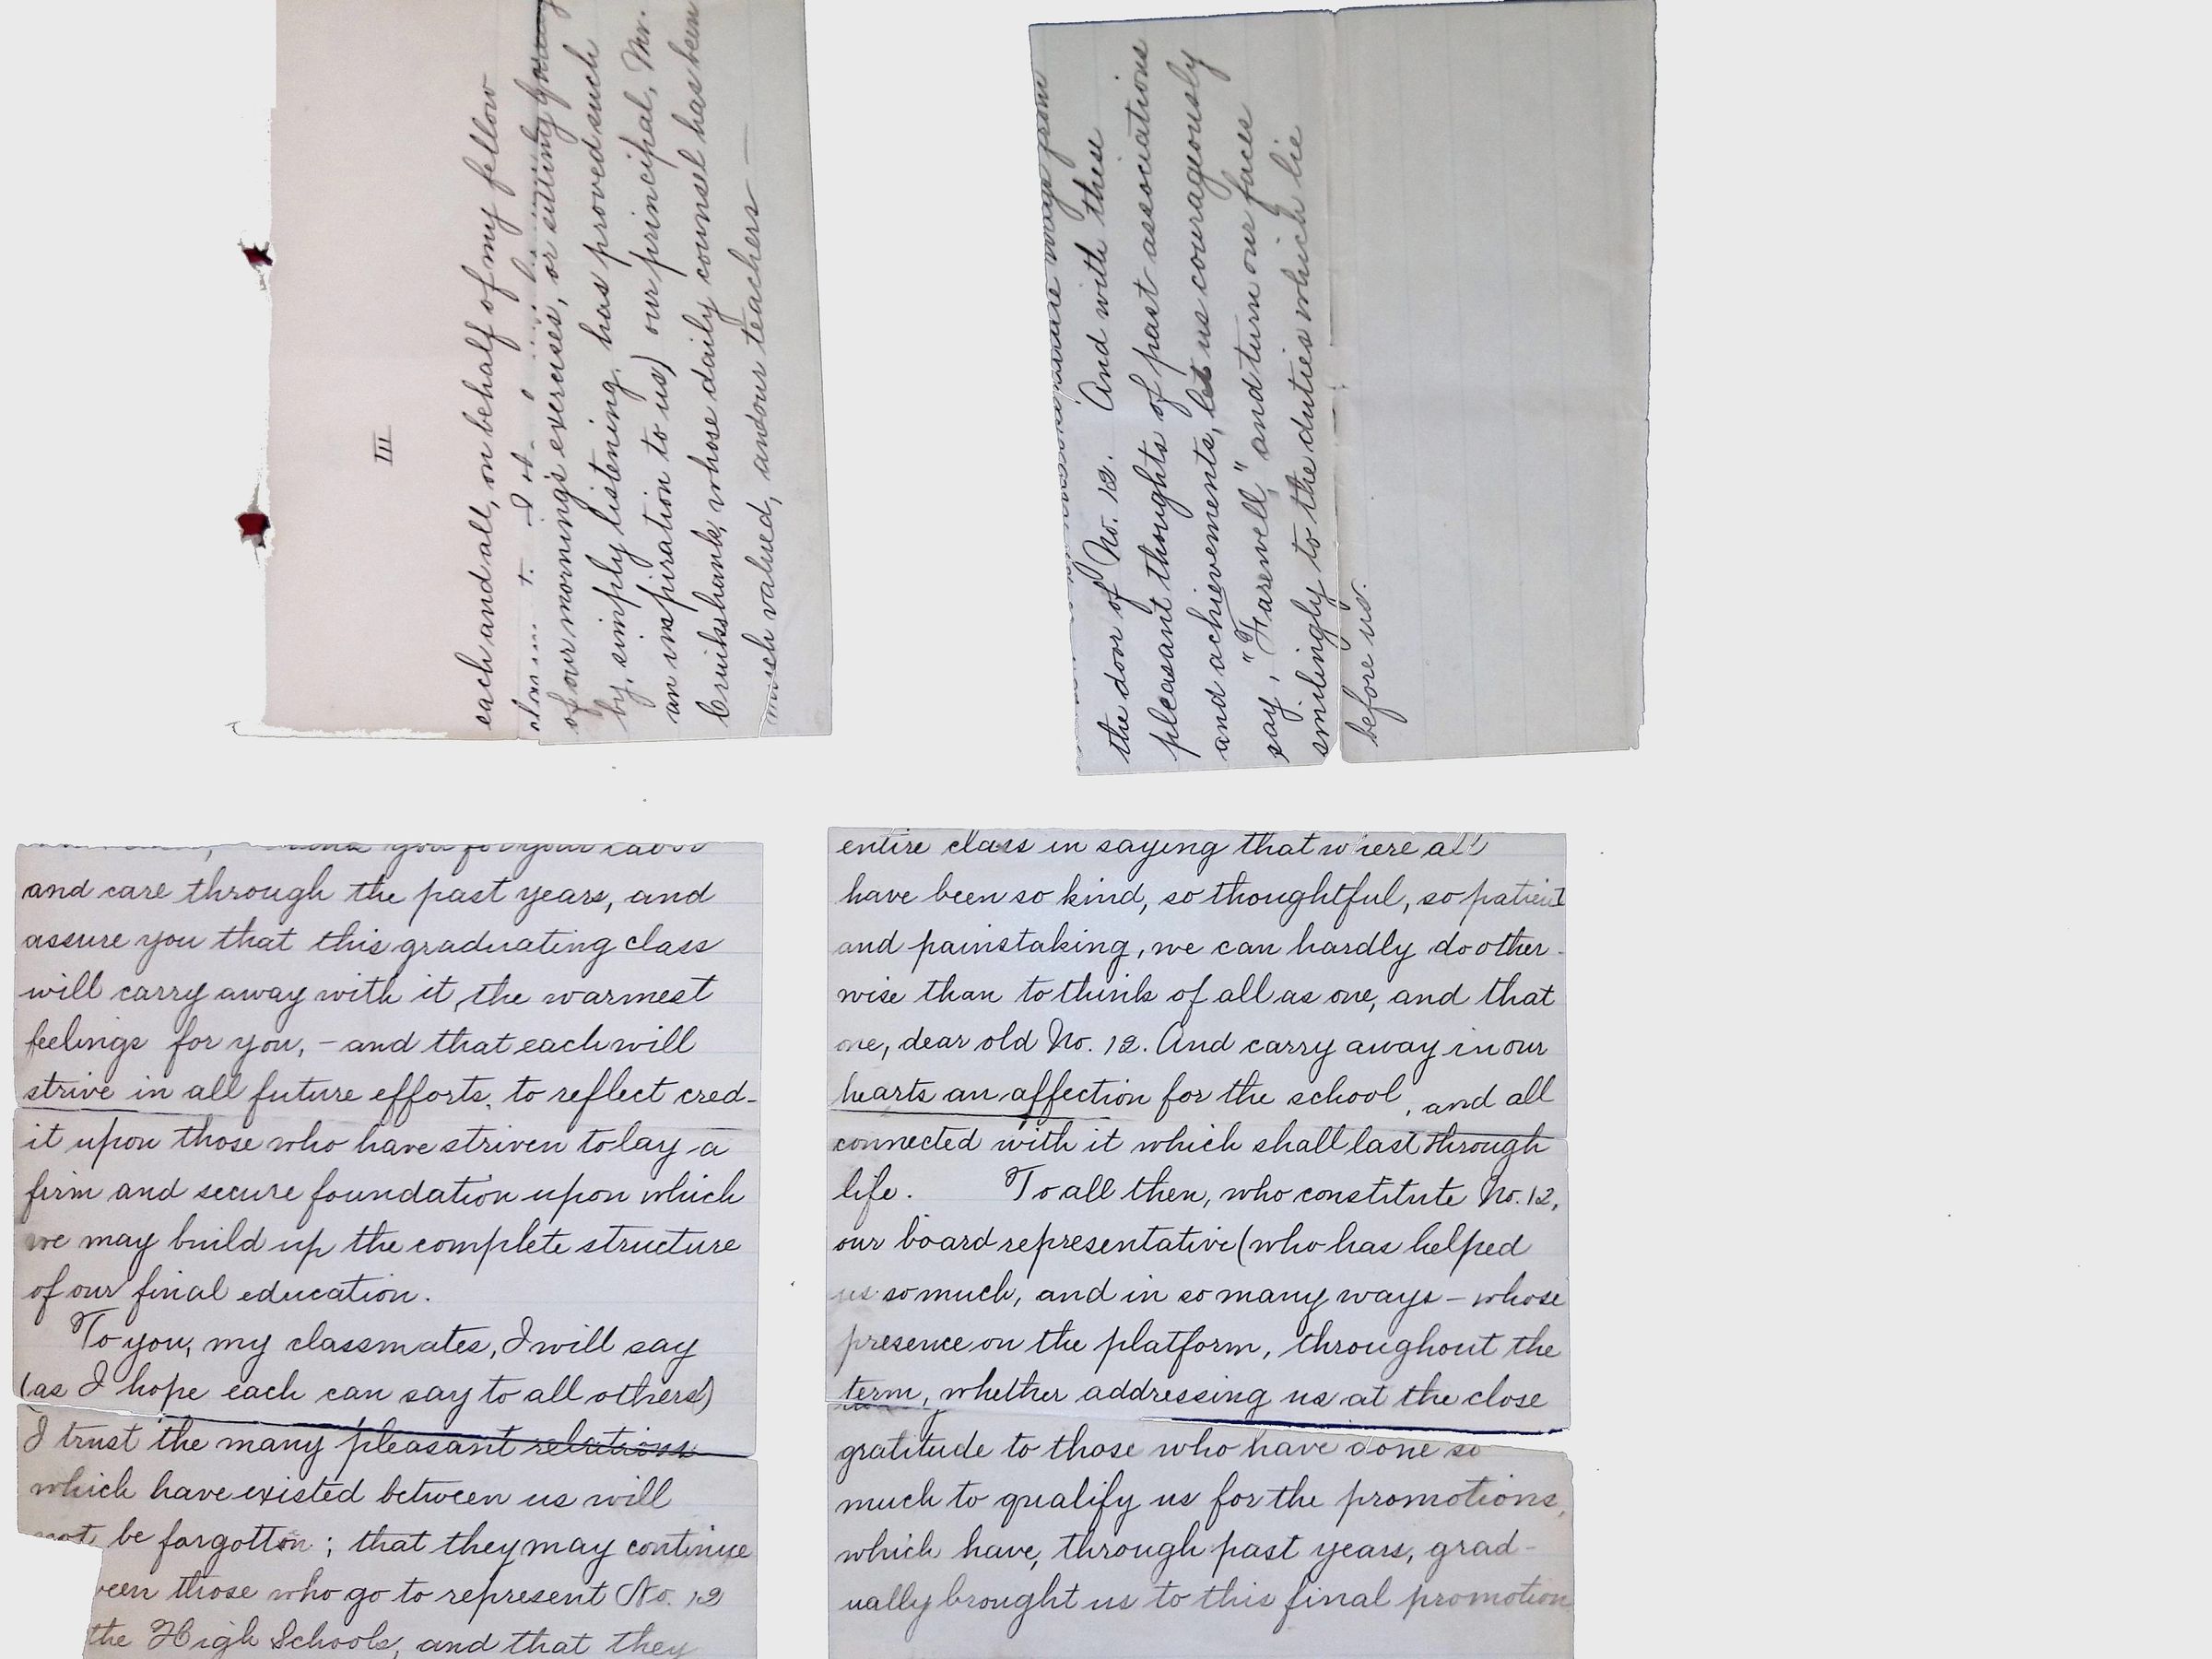 III
each and all, on behalf of my fellow
of our morning's exercises, or sitting
by, simply listening, has proved such
an inspiration to us) our principal, Mr.
Cruikshank, whose daily counsel has been
much valued, and our teachers —
the door of No. 12. And with these
pleasant thoughts of past associations
and achievements, let us courageously
say, "Farewell," and turn our faces
smilingly to the duties which lie
before us.
you for your labor
and care through the past years, and
assure you that this graduating class
will carry away with it, the warmest
feelings for you, – and that each will
strive in all future efforts, to reflect cred-
it upon those who have striven to lay a
firm and secure foundation upon which
we may build up the complete structure
of our final education.
To you, my classmates, I will say
(as I hope each can say to all others)
I trust the many pleasant relations
which have existed between us will
not be forgotton ; that they may continue
those who go to represent No. 12
the High Schools, and that they
entire class in saying that where all
have been so kind, so thoughtful, so patient
and painstaking, we can hardly do other-
wise than to think of all as one, and that
one, dear old No. 12. And carry away in our
hearts an affection for the school, and all
connected with it which shall last through
life. To all then, who constitute No. 12,
our board representative (who has helped
us so much, and in so many ways – whose
presence on the platform, throughout the
term, whether addressing us at the close
gratitude to those who have done so
much to qualify us for the promotions,
which have, through past years, grad-
ually brought us to this final promotion